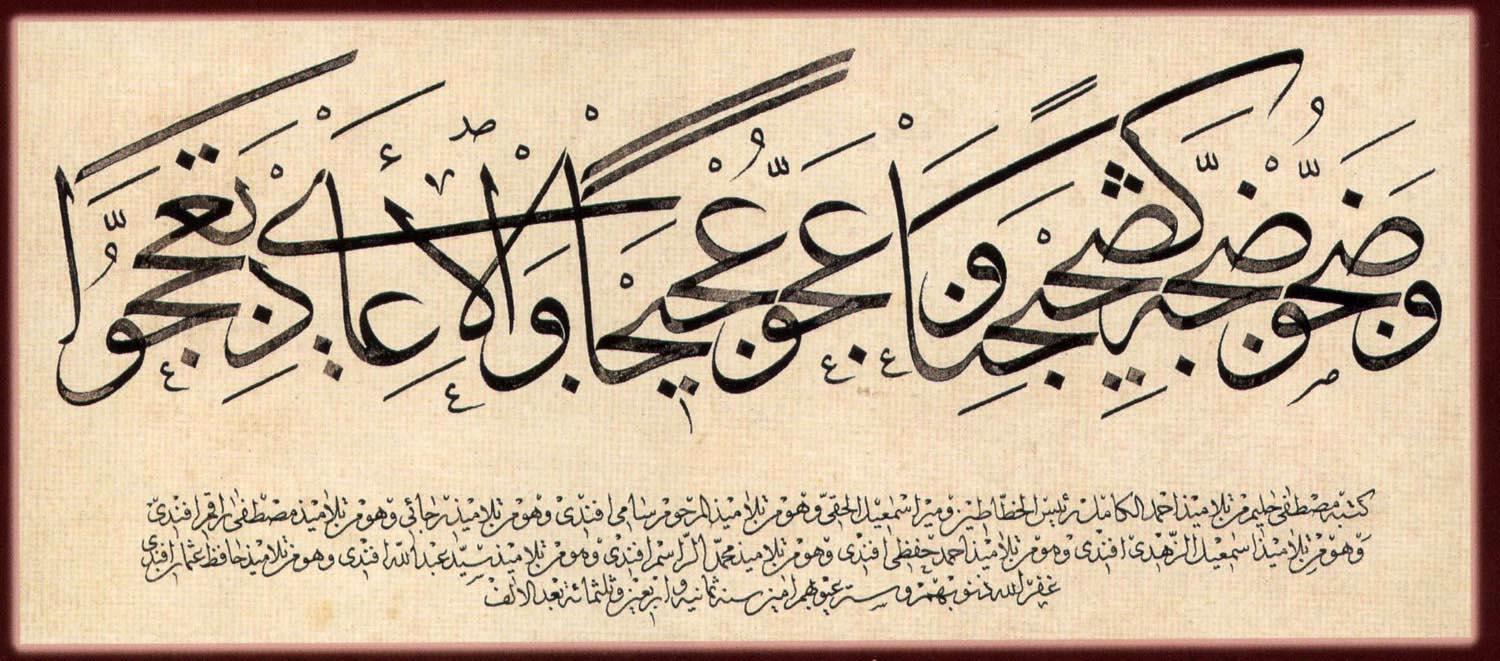 والأعادي
كتبه مصطفى حليم من تلاميذ احمد الكامل رئيس الخطاطين ومير اسمعيل الحقى وهو من تلاميذ المرحوم سامى افندى وهو من تلاميذ رجائى وهو من تلاميذ مصطفى راقم افندى
وهو من تلاميذ اسمعيل الزهدى افندى وهو من تلاميذ احمد حفظى افندى وهو من تلاميذ محمد الراسم افندى وهو من تلاميذ سيد عبد الله افندى وهو من تلاميذ حافظ عثمان افندى
غفر الله ذنوبهم وستر عيوبهم امين سنة ثمانيه واربعين وثلثمائة بعد الالف